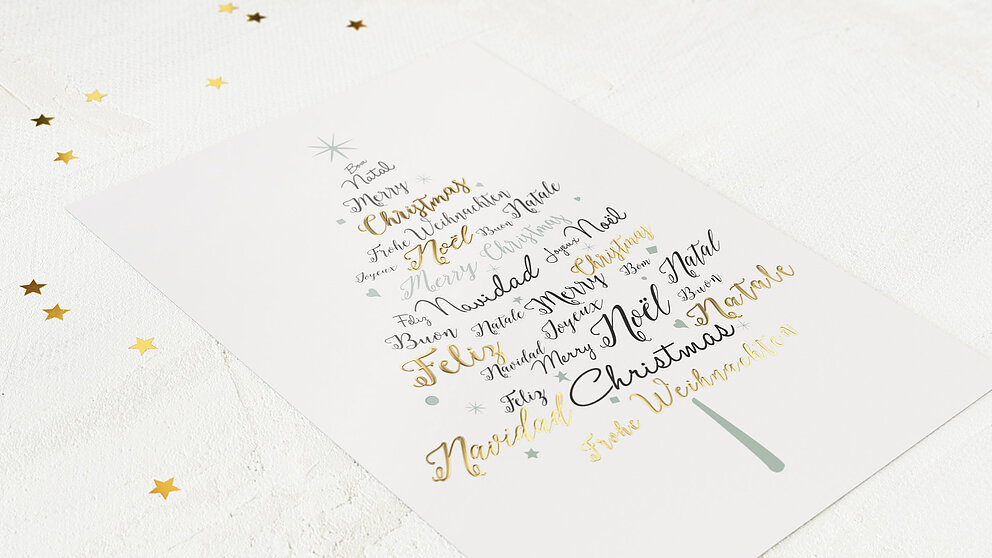 Bom
Natal
Merry
Christmas
Frohe Weihnachten
Joyeux Noël Buon Natale
Merry Christmas
Joyeux Noël
Feliz Navidad
Christmas
Buon Natale Merry Bom Natal
Feliz Joyeux Noël Buon
Navidad Merry Natale
Feliz Christmas
Navidad
Frohe Weihnachten